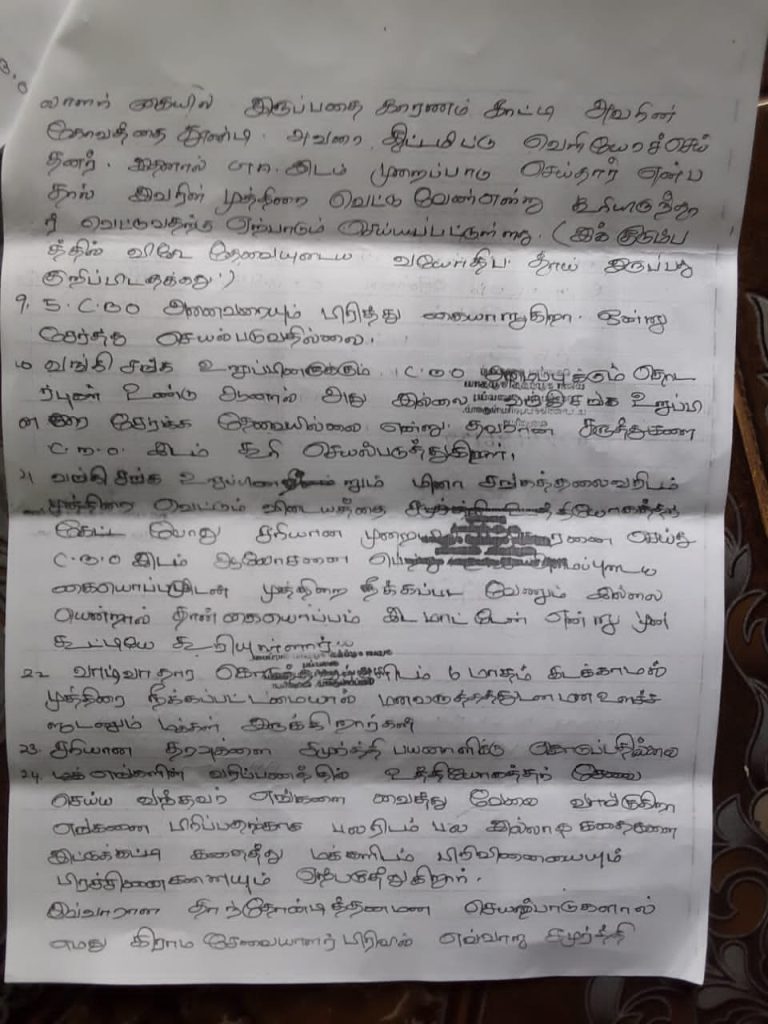 லாளர் கையில் இருப்பதை காரணம் காட்டி அவரின்
கோபத்தை தூண்டி அவரை திட்டமிட்டு வெளியேறச்செய்
தனர். இதனால் இடம் முறைப்பாடு செய்தார் என்ப
தால் இவரின் முத்திரை வெட்ட வேண்டுமென்று கூறியிருந்தார்
வெட்டுவதற்கு ஏற்பாடும் செய்யப்பட்டுள்ளது. (இக் குடும்ப
த்தில் விசேட தேவையுடைய வயோதிப தாய் இருப்பது
குறிப்பிடதக்கது.)
9. 5. C.B.O அனைவரையும் பிரித்து கையாளுகிறார். ஒன்று
சேர்த்து செயல்படுவதில்லை.
வங்கி சங்க உறுப்பினருக்கும் C.B.O க்கும் தொட
ர்புகள் உண்டு ஆனால் அது இல்லை சங்க உறுப்பி
சேர்க்க தேவையில்லை என்று தவறான கருத்துகளை
C.B.O இடம் கூறி செயல்படுத்துகிறார்.
21 வங்கி சங்க உறுப்பினர் மற்றும் கிராம சங்கத்தலைவரிடம்
முத்திரை வெட்டும் விடயத்தை
கேட்ட போது சரியான முறை செய்து
C.B.O இடம் ஆலோசனை
கையொப்பமுடன் முத்திரை நீக்கப்பட வேணும் இல்லை
யென்றால் தான் கையொப்பம் இடமாட்டேன் என்று முன்
கூட்டியே கூறியுள்ளார்
22 வாழ்வாதார 6 மாதம் கிடக்காமல்
முத்திரை நீக்கப்பட்டமையால் மனவருத்தத்துடன் மன உளைச்ச
லுடனும் மக்கள் இருக்கிறார்கள்
23. சரியான தரவுகளை சமுர்த்தி பயனாளிக்கு கொடுப்பதில்லை
24. மக்களின் வரிப்பணத்தில் உத்தியோகத்தர் சேவை
செய்ய வந்தவர் எங்களை வைத்து வேலை வாங்குகிறார்
எங்களை பிரிப்பதற்காக பலரிடம் பல இல்லாத கதைகளை
இட்டுக்கட்டி கதைத்து மக்களிடம் பிரிவினையையும்
பிரச்சினைகளையும் ஏற்படுத்துகிறார்.
இவ்வாறான தான்தோன்றித்தனமான செயற்பாடுகளால்
எமது கிராம சேவையாளர் பிரிவில் எவ்வாறு சமுர்த்தி